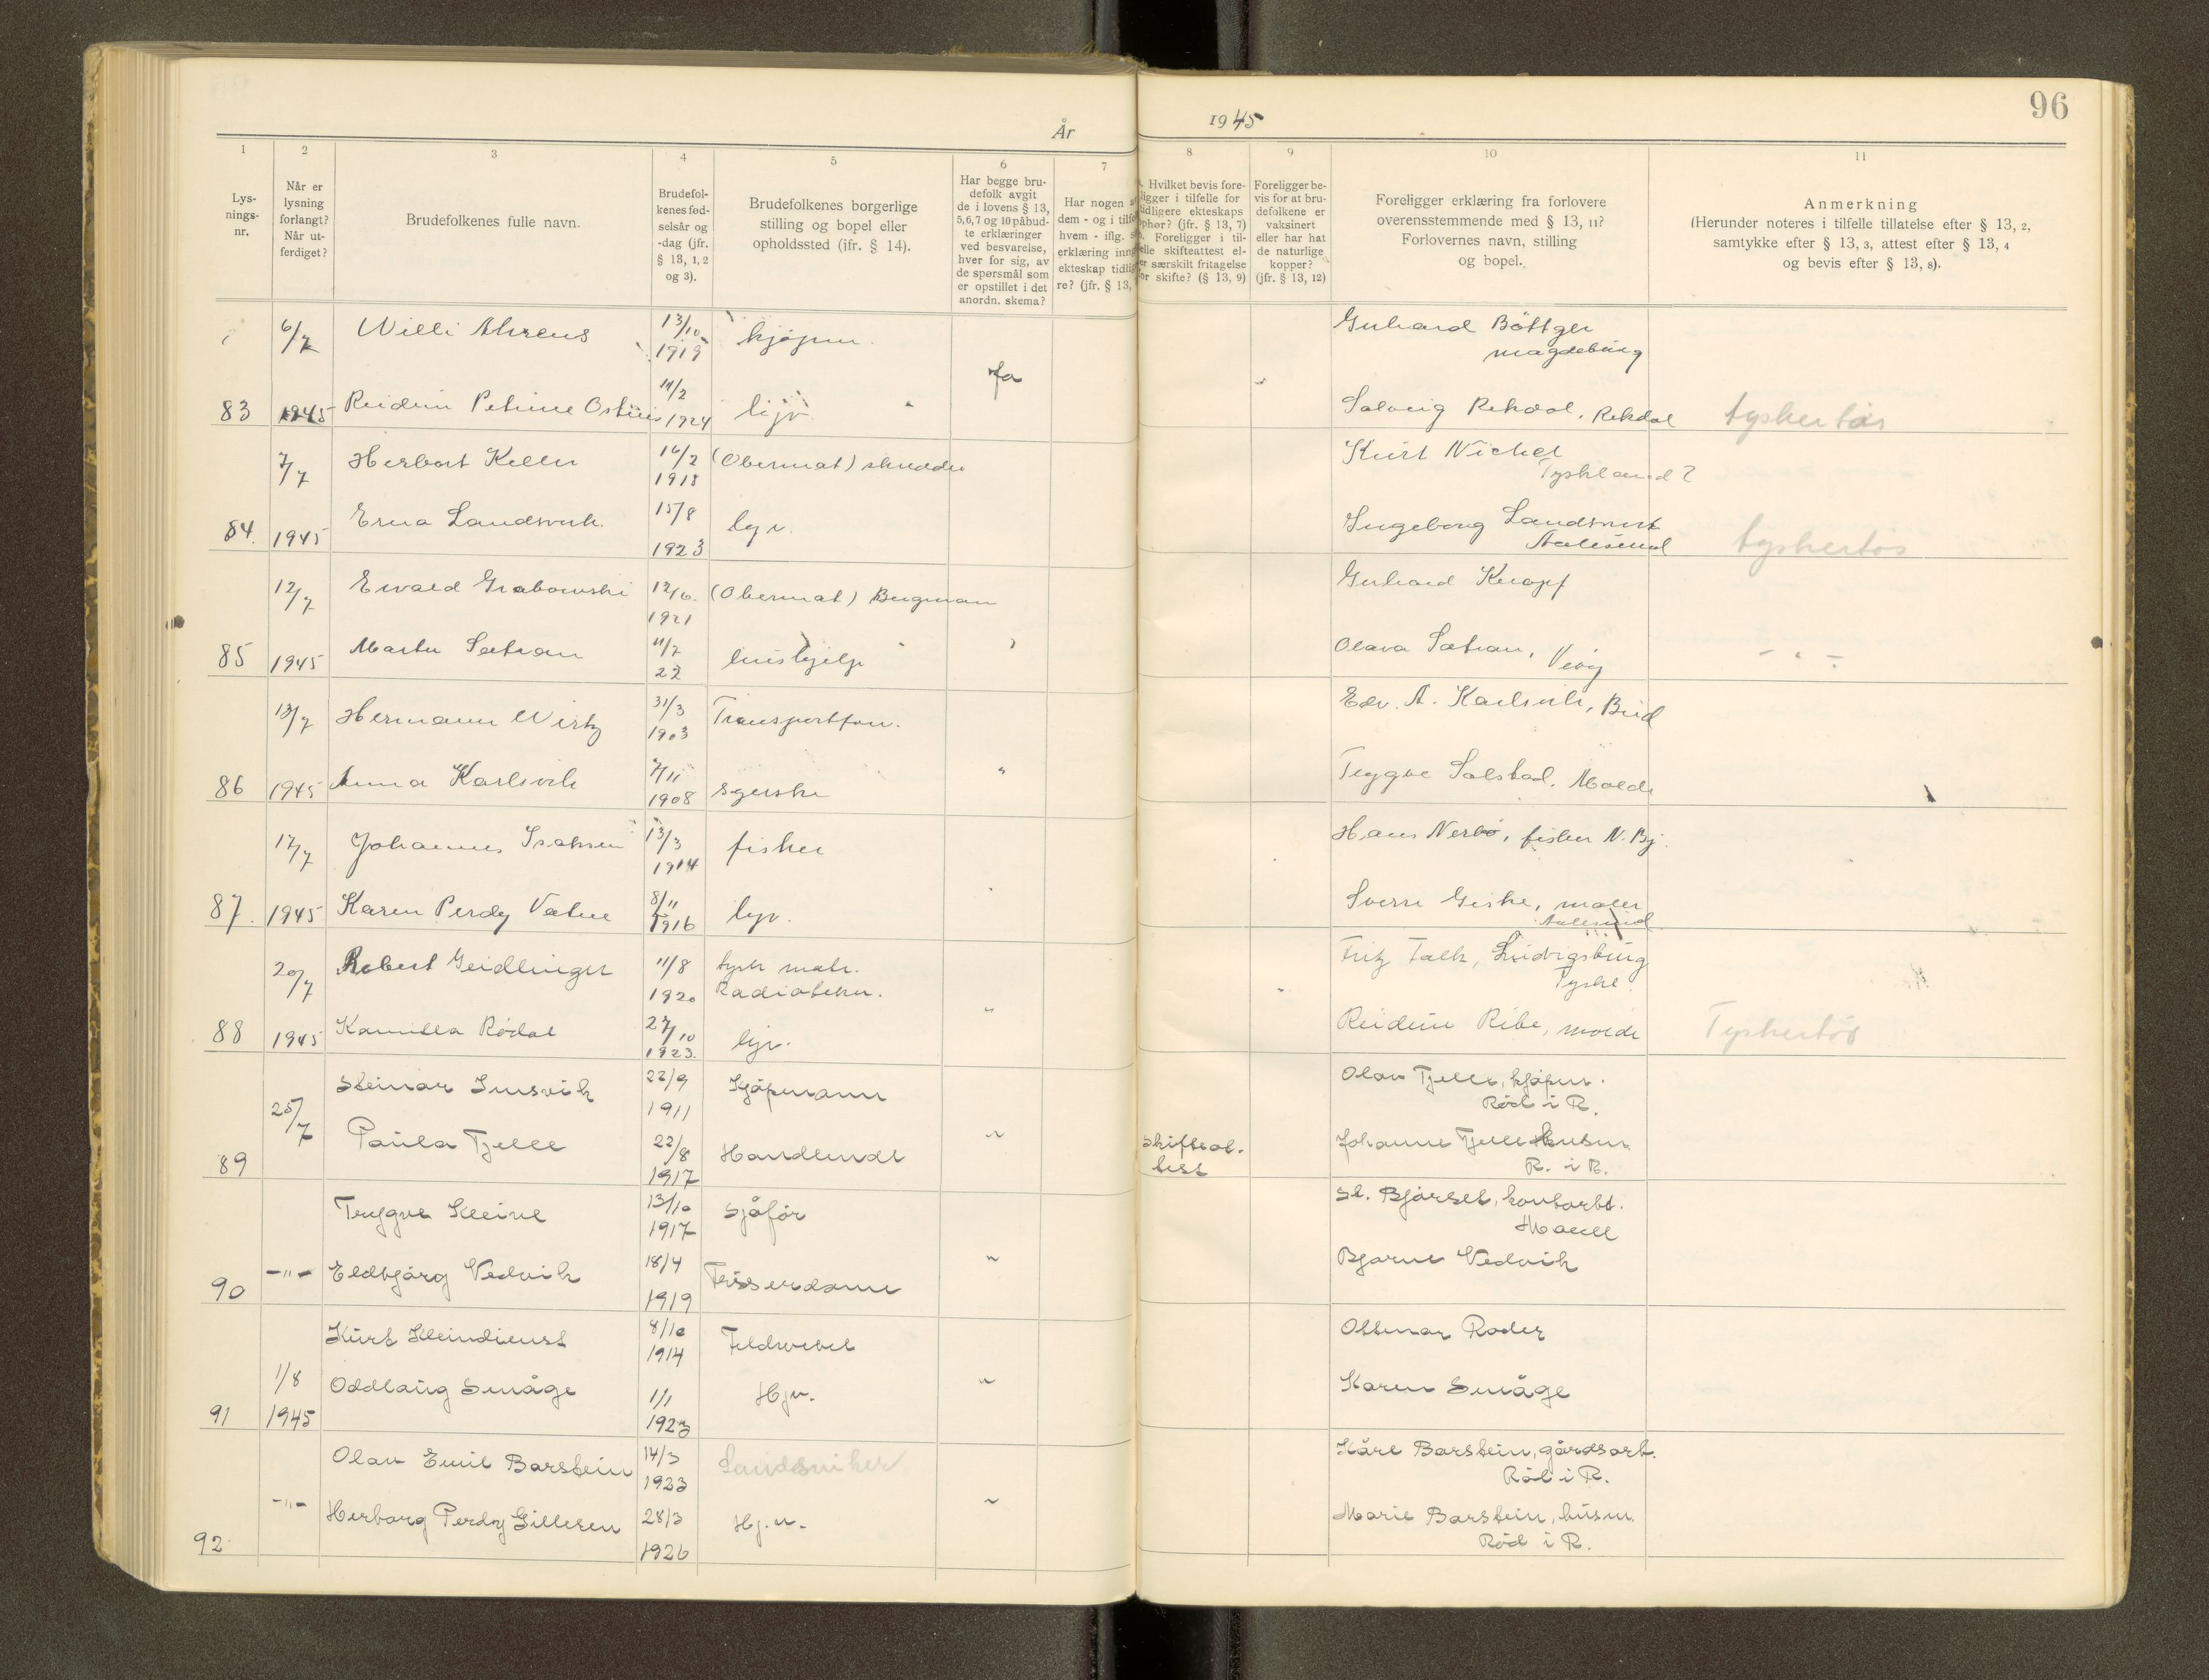 96
År 1945
1 2 3 4 5 6 7 8 9 10 11
Lys-
nings-
nr.
Når er
lysning
forlangt?
Når ut-
ferdiget?
Brudefolkenes fulle navn.
Brudefol-
kenes fød-
selsår og
-dag (jfr.
§ 13, 1, 2
og 3).
Brudefolkenes borgerlige
stilling og bopel eller
opholdssted (ifr. § 14).
Har begge bru-
defolk avgit
de i lovens § 13,
5, 6, 7 og 10 påbud-
te erklæringer
ved besvarelse,
hver for sig, av
de spørsmål som
er opstillet i det
anordn. skema?
Har nogen a
dem - og i tilfe
hvem - iflg.
erklæring inng
ekteskap tidlig
re? (jfr. § 13,
Hvilket bevis fore-
ligger i tilfelle for
tidligere ekteskaps
ophør? (jfr. § 13, 7)
Foreligger i til-
felle skifteattest el-
er særskilt fritagelse
for skifte? (§ 13, 9)
Foreligger be-
vis for at bru-
defolkene er
vaksinert
eller har hat
de naturlige
kopper?
(jfr. § 13, 12)
Foreligger erklæring fra forlovere
overensstemmende med § 13, 11?
Forlovernes navn, stilling
og bopel.
Anmerkning
(Herunder noteres i tilfelle tillatelse efter § 13, 2,
samtykke efter § 13, 3, attest efter § 13, 4
og bevis efter § 13, 8).
6/7 Willi Ahrens 13/10 1919 kjøpm. Gerhard Böttger
Magdeburg
Ja
83 1945 Reidun Petrine 11/2 1924 hjv. Solveig Rekdal, Rekdal tyskertøs
7/7 Herbert Keller 16/2 1918 (Obermat) skredder Kurt Nickel
Tyskland?
84. 1945 Erna Landsvik 15/8 1923 hjv. Ingeborg Landsvik
Aalesund tyskertøs
12/7 Ewald Grabowski 12/6. 1921 (Obermat) Bergman Gerhard Knopf
85 1945 Marta Sætran 11/7 22 hushjelp " Olava Sætran, Veøy - " -
13/7 Hermann Wirtz 31/3 1903 Transportfør. Edv. A. Karlsvik, Bud
86 1945 Anna Karlsvik 7/11 1908 syerske " Trygve Solstad, Molde
17/7 Johannes Isaksen 13/3 1914 fisker Hans Nerbø, fisker N. Bj.
87. 1945 Karen Perdy Vatne 8/11 1916 hjv. " Sverre Giske, maler
Aalesund
20/7 Robert Geidlinger 11/8 1920 tysk matr.
Radiotekn. Fritz Falk, Ludvigsburg
Tyskl.
88 1945 Kamilla Rødal 27/10 1923. hjv. " Reidun Ribe, Molde Tyskertøs
25/7 Steinar Snusvik 22/9 1911 Kjøpmann Olav Tjelle, kjøpm.
Rød i R.
89 Paula Tjelle 22/8 1917 Handlende " Skifteat-
test Johanne Tjelle husm.
R. i R.
Trygve Kleive 13/10 1917 Sjåfør Sl. Bjørset, kontorbt.
90 -"- Eldbjørg Vedvik 18/4 1919 Friserdame " Bjarne Vedvik
Kurt Kleindienst 8/10 1914 Feldwebel Ottmar Roder
91 1/8 1945 Oddlaug Småge 1/1 1923 Hjv. " Karen Småge
Olav Emil Barstein 14/3 1923 Landsviker Kåre Barstein, gårdsarb.
Rød i R.
92 -"- Herborg Perdy Gillesen 28/3 1926 Hj.v. " Marie Barstein, husm.
Rød i R.